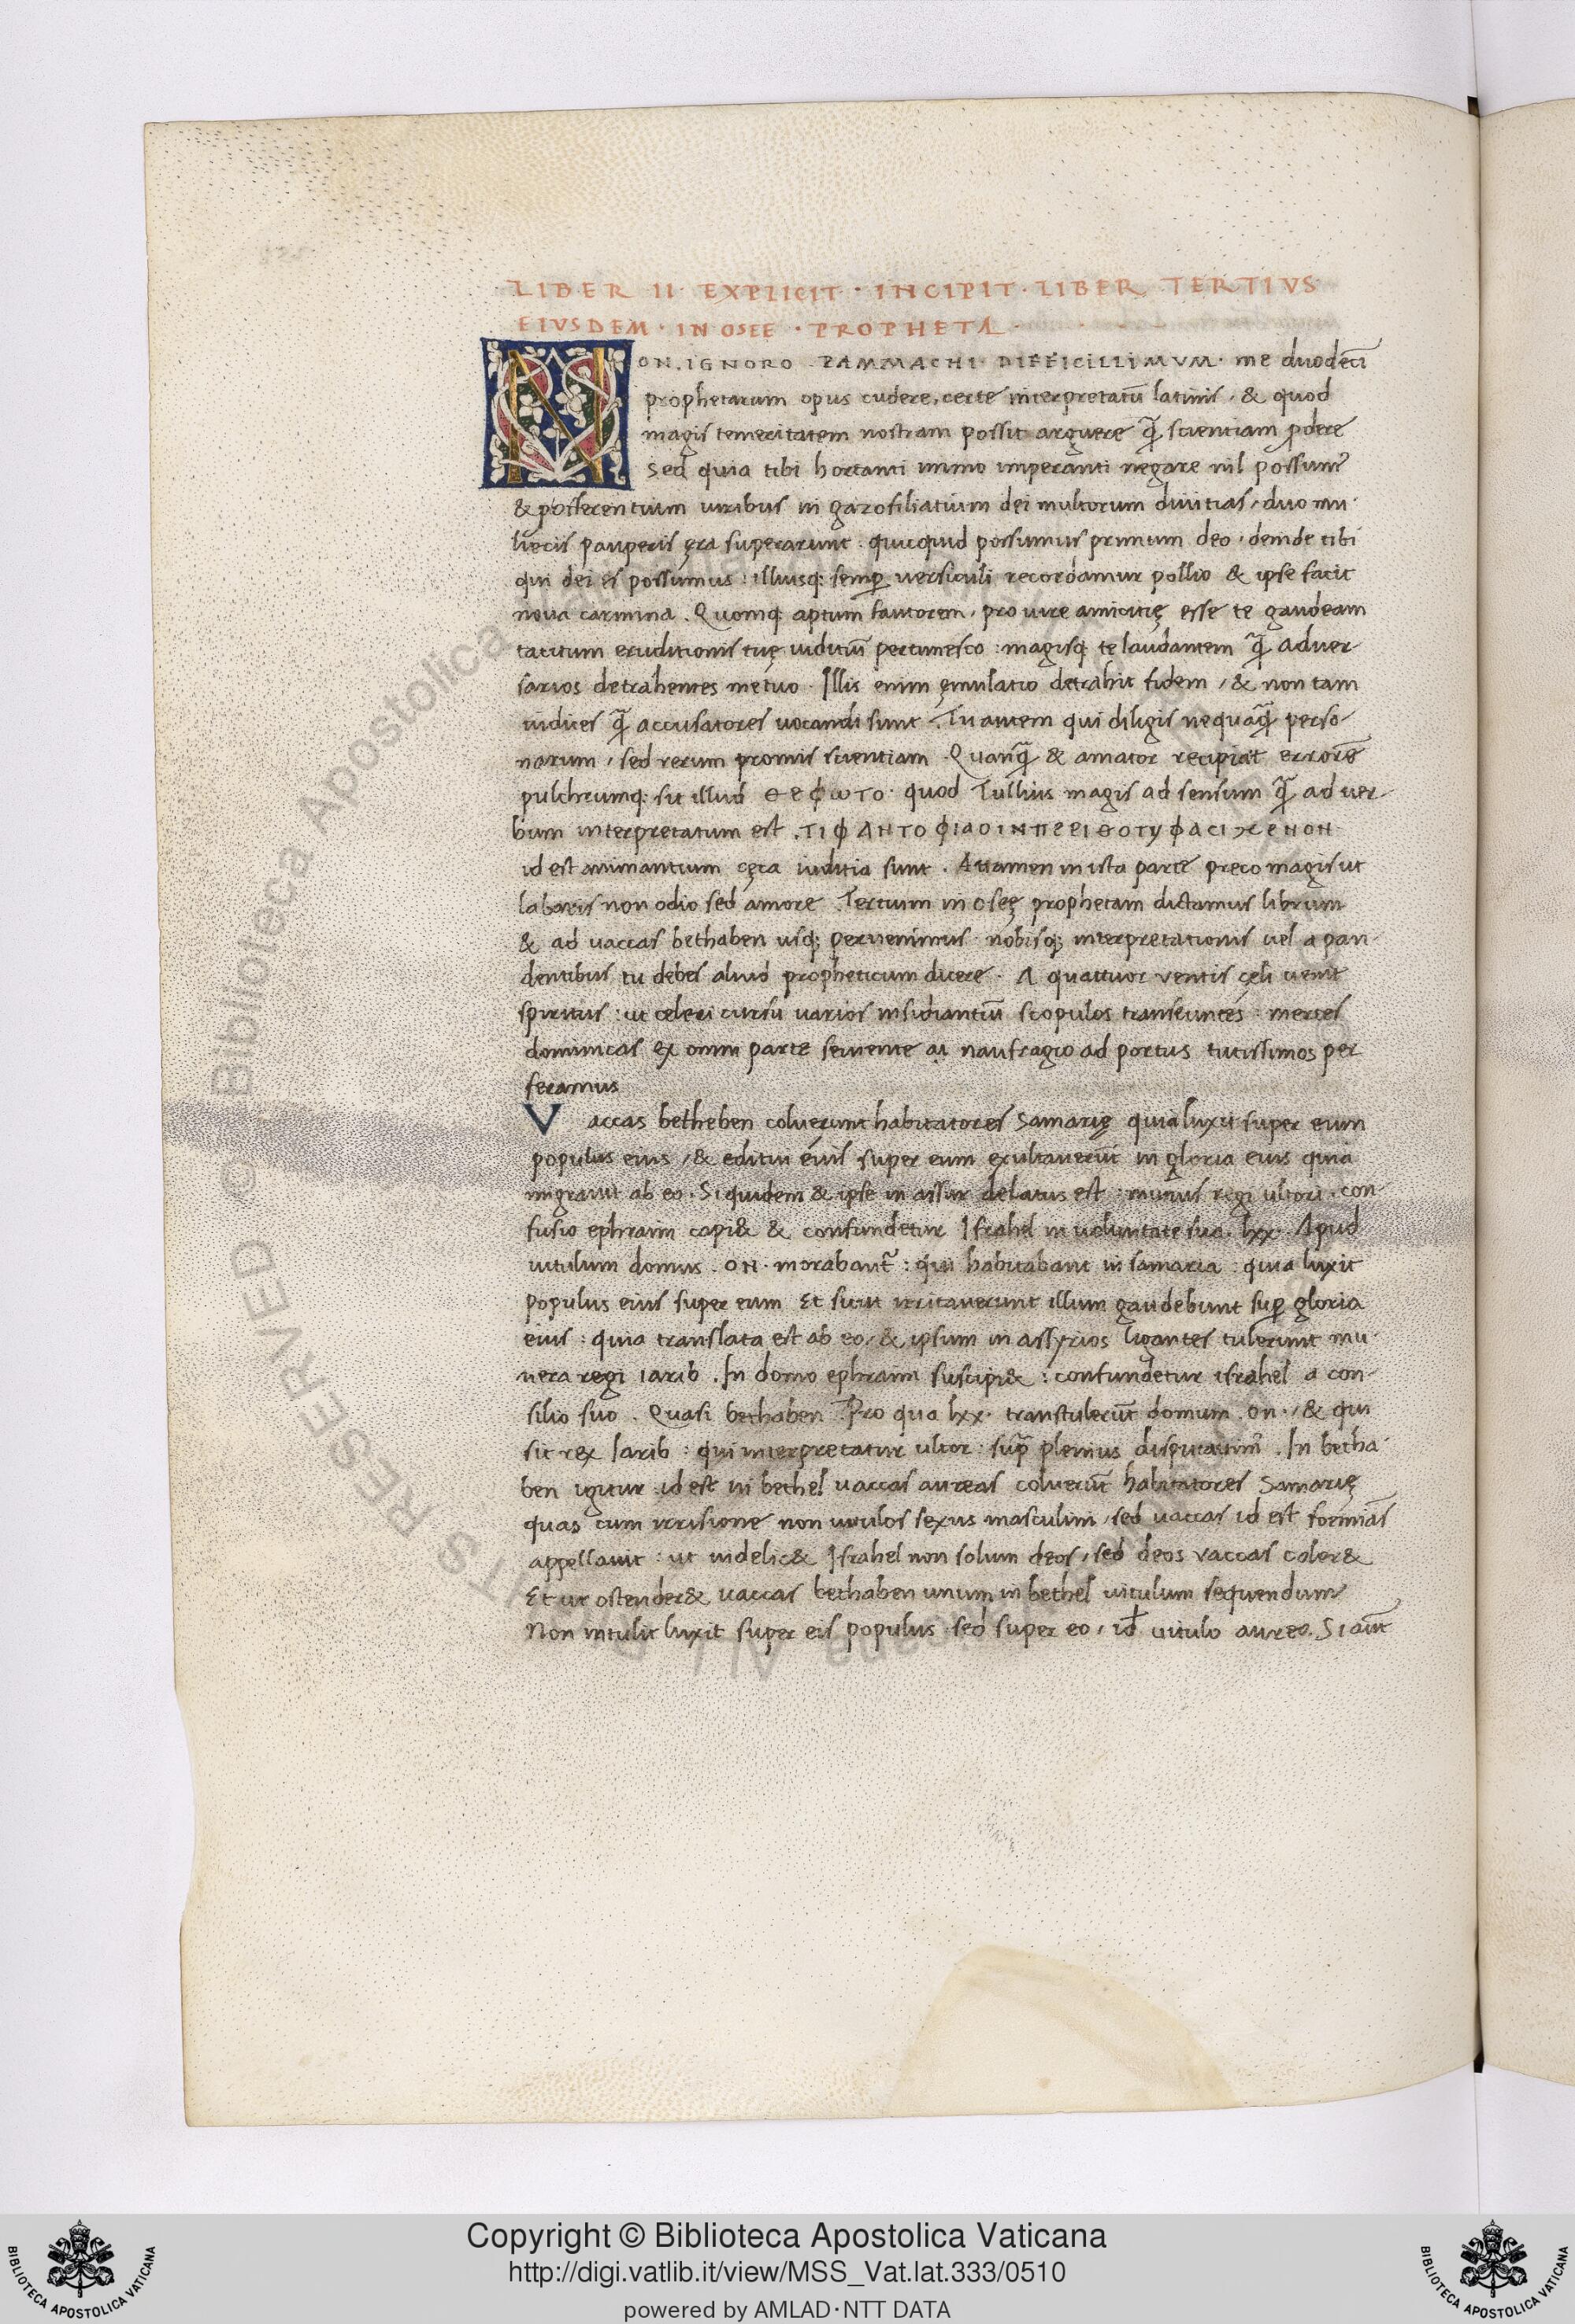 LIBER II EXPLICIT · INCIPIT · LIBER TERTIVS
EIVSDEM · IN OSEE · PROPHETA ·
NON IGNORO PAMMACHI DIFFICILLIMVM · me duodeci
prophetarum opus cudere, certe interpretatū latinis, & quod
magis temeritatem nostram possit arguere q̄ scientiam ꝓdere
Sed quia tibi hortanti immo imperanti negare nil possum⁹
& offerentium uiribus in gazofiliatium dei multorum diuitias, duo mu
lieris pauperis ęra superarunt · quicquid possumus primum deo, deinde tibi
qui dei es possumus : illiusq; semꝑ uersiculi recordamur pollio & ipse facit
noua carmina . Quomq; aptum fautorem, pro iure amicitię esse te gaudeam
tacitum eruditionis tuę iuditiū pertimesco : magisq; te laudantem q̄ aduer
sarios detrahentes metuo . Illis enim ęmulatio detrahit fidem, & non tam
iudices q̄ accusatores uocandi sunt . Tu autem qui diligis nequaq̄ perso
narum, sed rerum promis scientiam . Quanq̄ & amator recipiat errorē
pulchrumq; sit illud ΘΕΦωΤΟ · quod Tullius magis ad sensum q̄ ad uer
bum interpretatum est .
id est animantium cęca iuditia sunt . Attamen in ista parte preco magis ut
laboris non odio sed amore . Tertium in Oseę prophetam dictamus librum
& ad uaccas bethaben usq; peruenimus · nobisq; interpretationis uel a pan
dentibus tu debes aliud propheticum dicere · A quattuor ventis cęli uenit
spiritus : ut celeri cursu uarios insidiantiū scopulos transeuntes : merces
dominicas ex omni parte seuiente ai naufragio ad portus tutissimos per
feramus
Vaccas betheben coluerunt habitatores Samarię quia luxit super eum
populus eius, & editui eius super eum exultauerūt in gloria eius quia
migrauit ab eo . Siquidem & ipse in assur delatus est : munus regi ultori · con
fusio ephraim capi& & confundetur Israhel in uoluntate sua. lxx · Apud
uitulum domus . ON · morabant̄ : qui habitabant in samaria : quia luxit
populus eius super eum Et sicut irritauerunt illum gaudebunt suꝑ gloria
eius : quia translata est ab eo, & ipsum in assyrios ligantes tulerunt mu
nera regi iarib . In domo ephraim suscipi& : confundetur israhel a con
silio suo . Quasi bethaben . Pro qua lxx · transtulerūt domum . on ·, & qui
sit rex Iarib : qui interpretatur ultor : sup̄ plenius disputauim⁹ . In betha
ben igitur id est in bethel uaccas aureas coluerūt habitatores Samarię
quas cum irrisione non uitulos sexus masculini, sed uaccas id est foeminas
appellauit : ut uidelic& Israhel non solum deos, sed deos vaccas coler&
Et ut ostender& uaccas bethaben unum in bethel uitulum sequendum
Non intulit luxit super eis populus · sed super eo, id uitulo aureo. Si aūt
© Biblioteca Apostolica Vaticana
ALL RIGHTS RESERVED
Copyright © Biblioteca Apostolica Vaticana
http://digi.vatlib.it/view/MSS_Vat.lat.333/0510
powered by AMLAD·NTT DATA
BIBLIOTECA APOSTOLICA VATICANA
BIBLIOTECA APOSTOLICA VATICANA